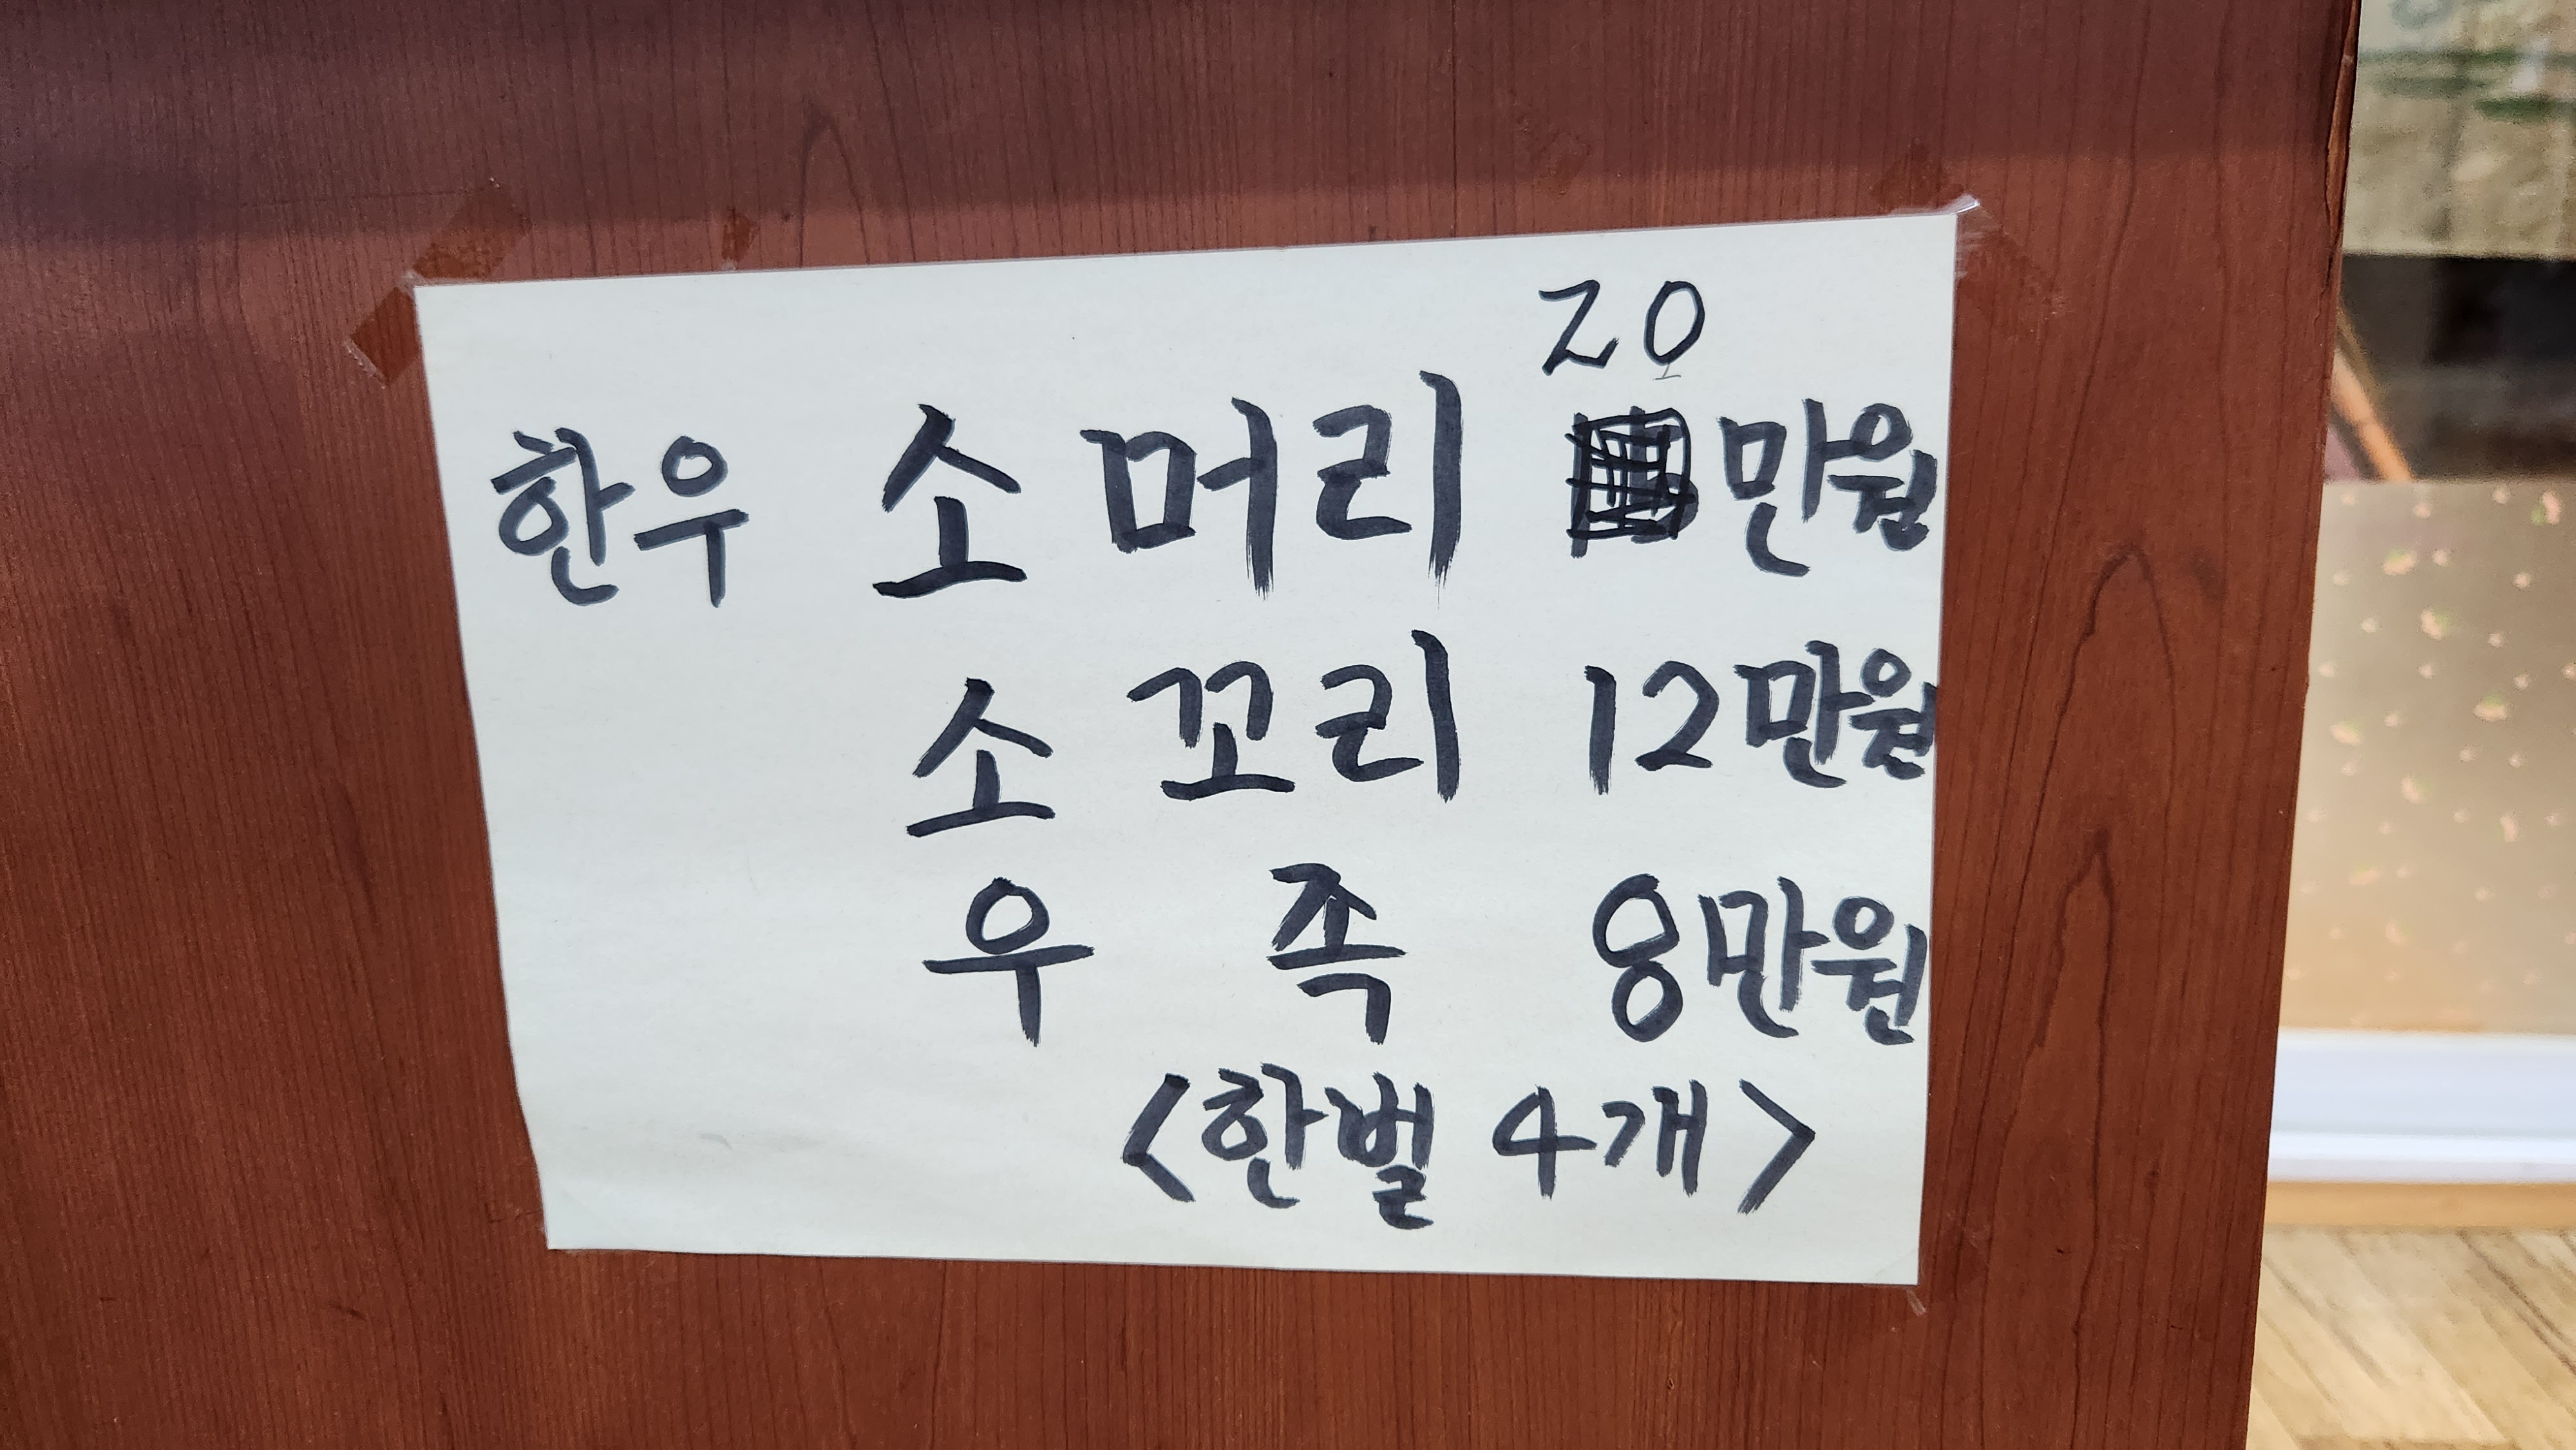 20
한우 소머리 만원
소꼬리 12만원
우족 8만원
<한벌 4개>